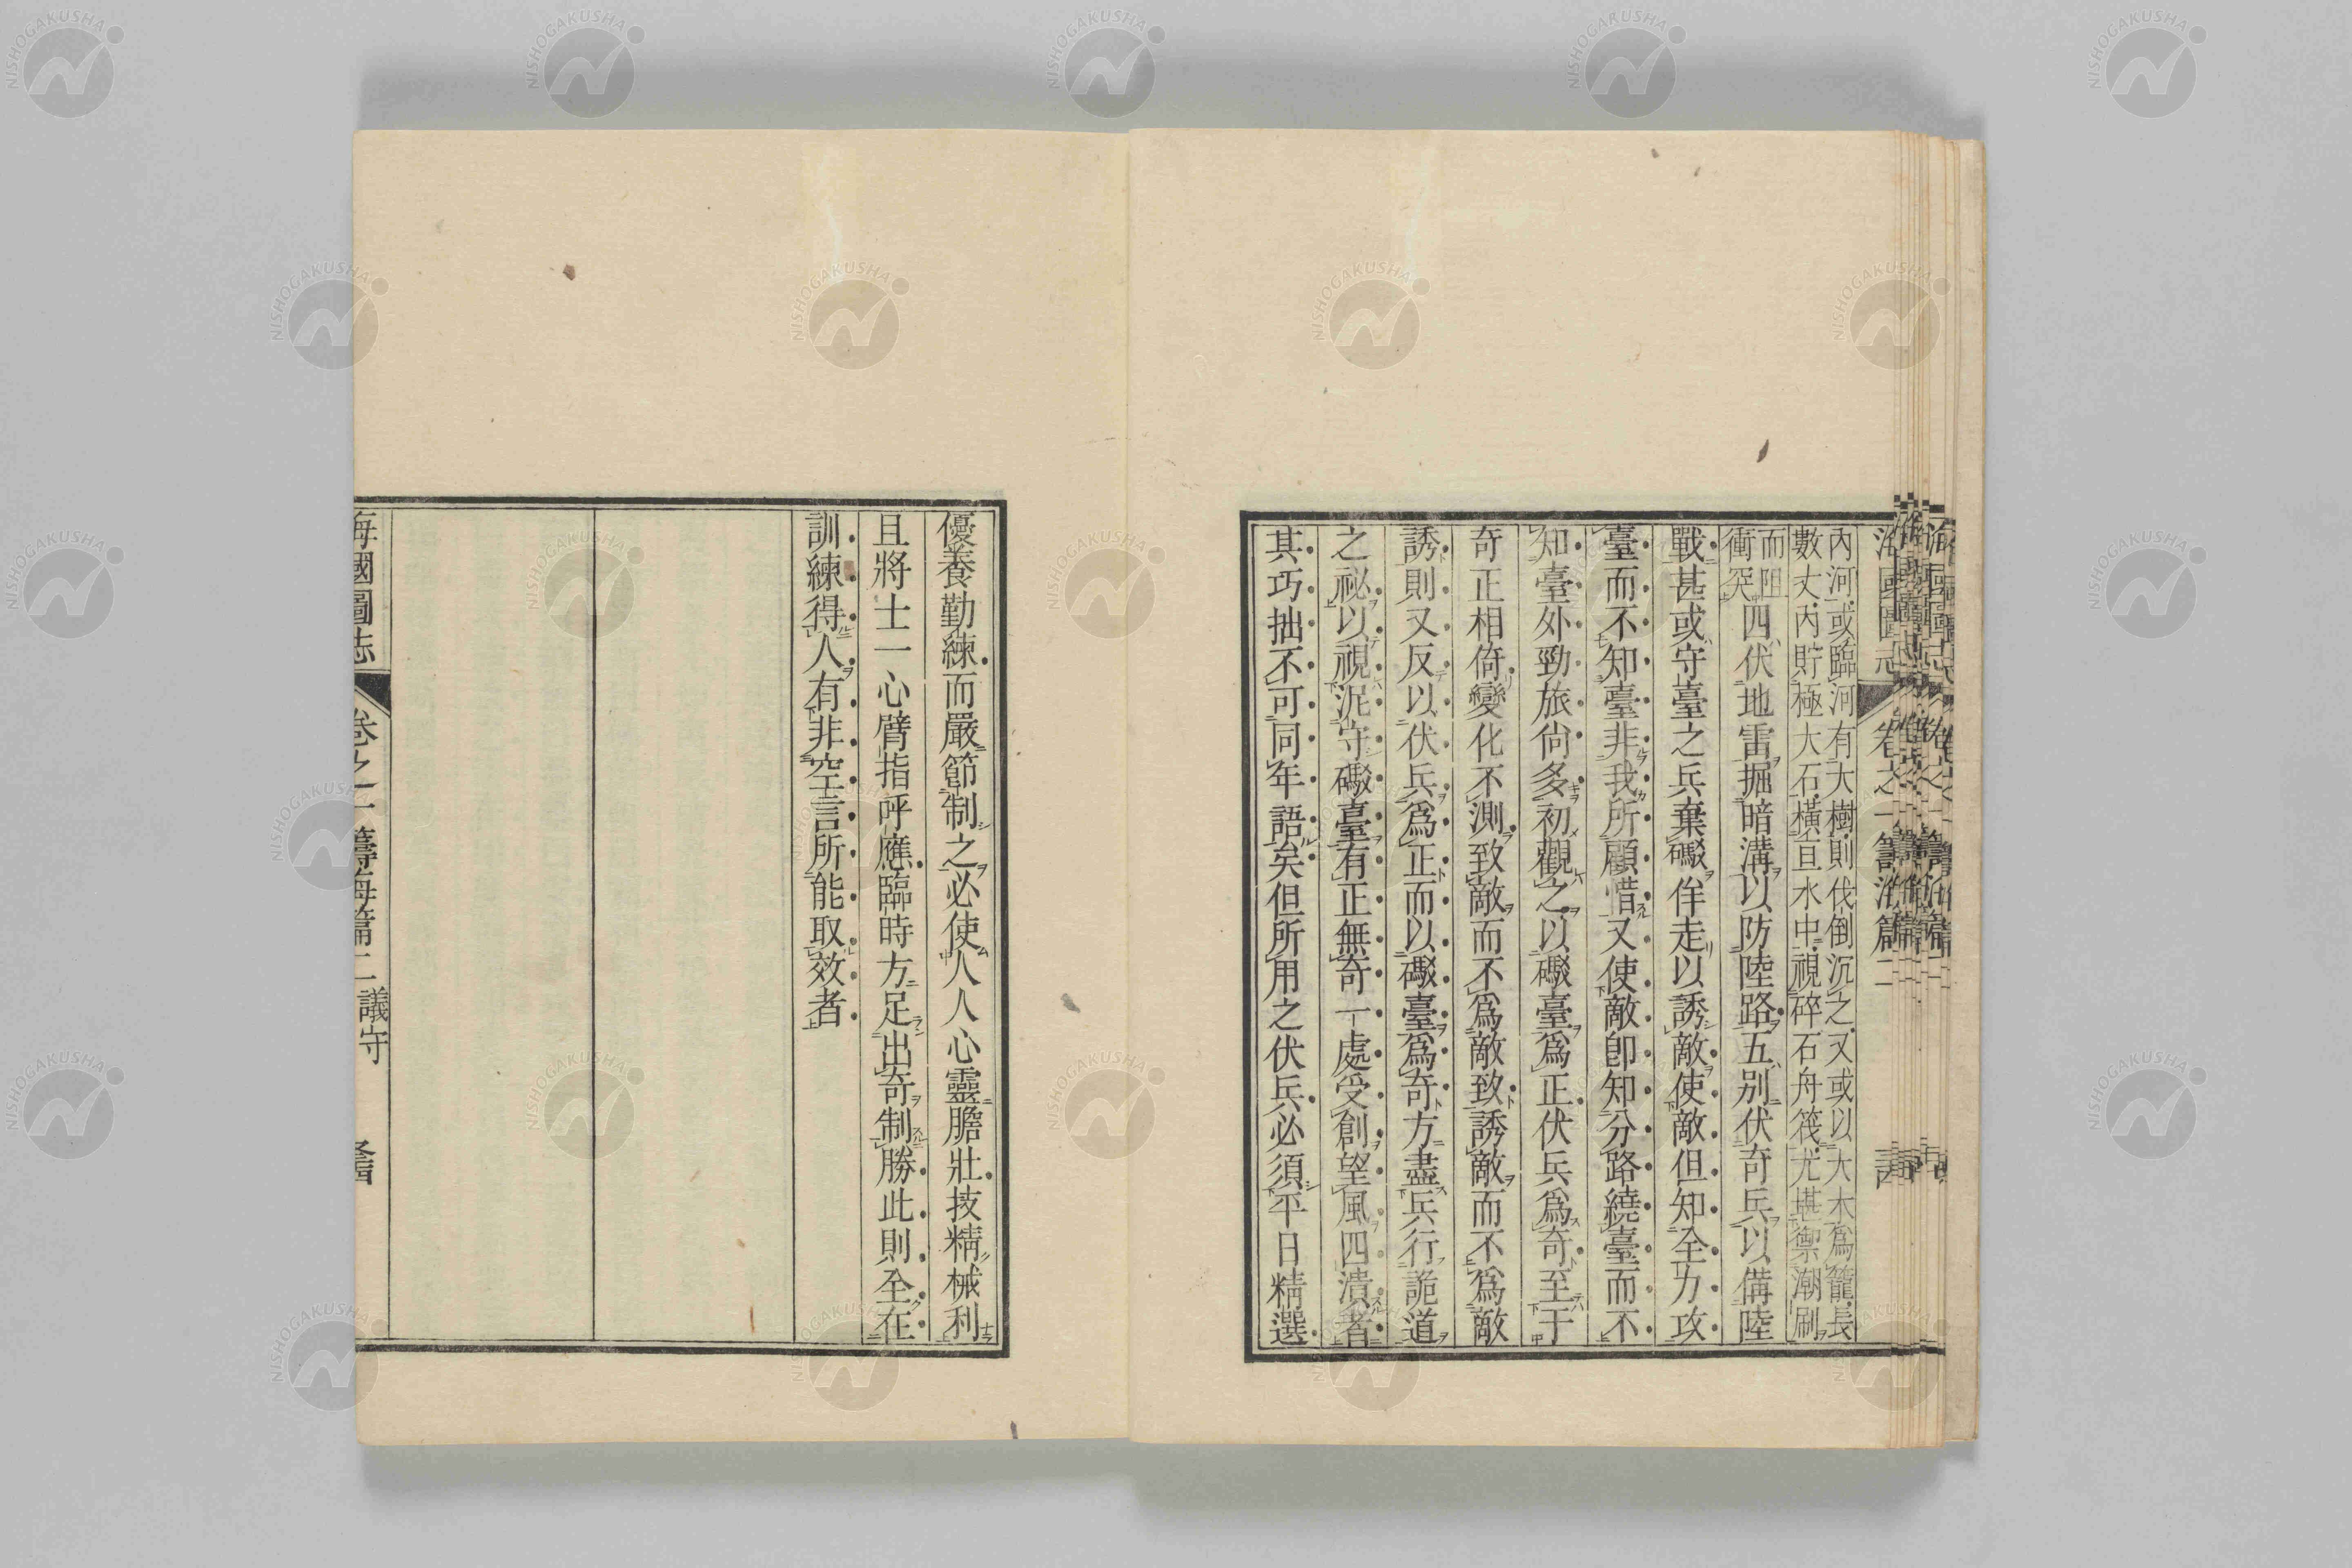 內河或臨河有大樹則伐倒沉之又或以大木爲籠長
數丈內貯極大石橫亘水中視碎石舟筏尤堪禦潮刷
而阻
衝突
四伏地雷掘暗溝以防陸路五别伏奇兵以備陸
戰甚或守臺之兵棄礮佯走以誘敵使敵但知全力攻
臺而不知臺非我所顧惜又使敵卽知分路繞臺而不
知臺外勁旅尙多初觀之以礮臺爲正伏兵爲奇至于
奇正相倚變化不測致敵而不爲敵致誘敵而不爲敵
誘則又反以伏兵爲正而以礮臺爲奇方盡兵行詭道
之祕以視泥守礮臺有正無奇一處受創望風四潰者
其巧拙不可同年語矣但所用之伏兵必須平日精選
優養勤練而嚴節制之必使人人心靈膽壯技精械利
且將士一心臂指呼應臨時方足出奇制勝此則全在
訓練得人有非空言所能取效者
海國圖志 卷之一 籌海篇二 議守
NISHOGAKUSHA